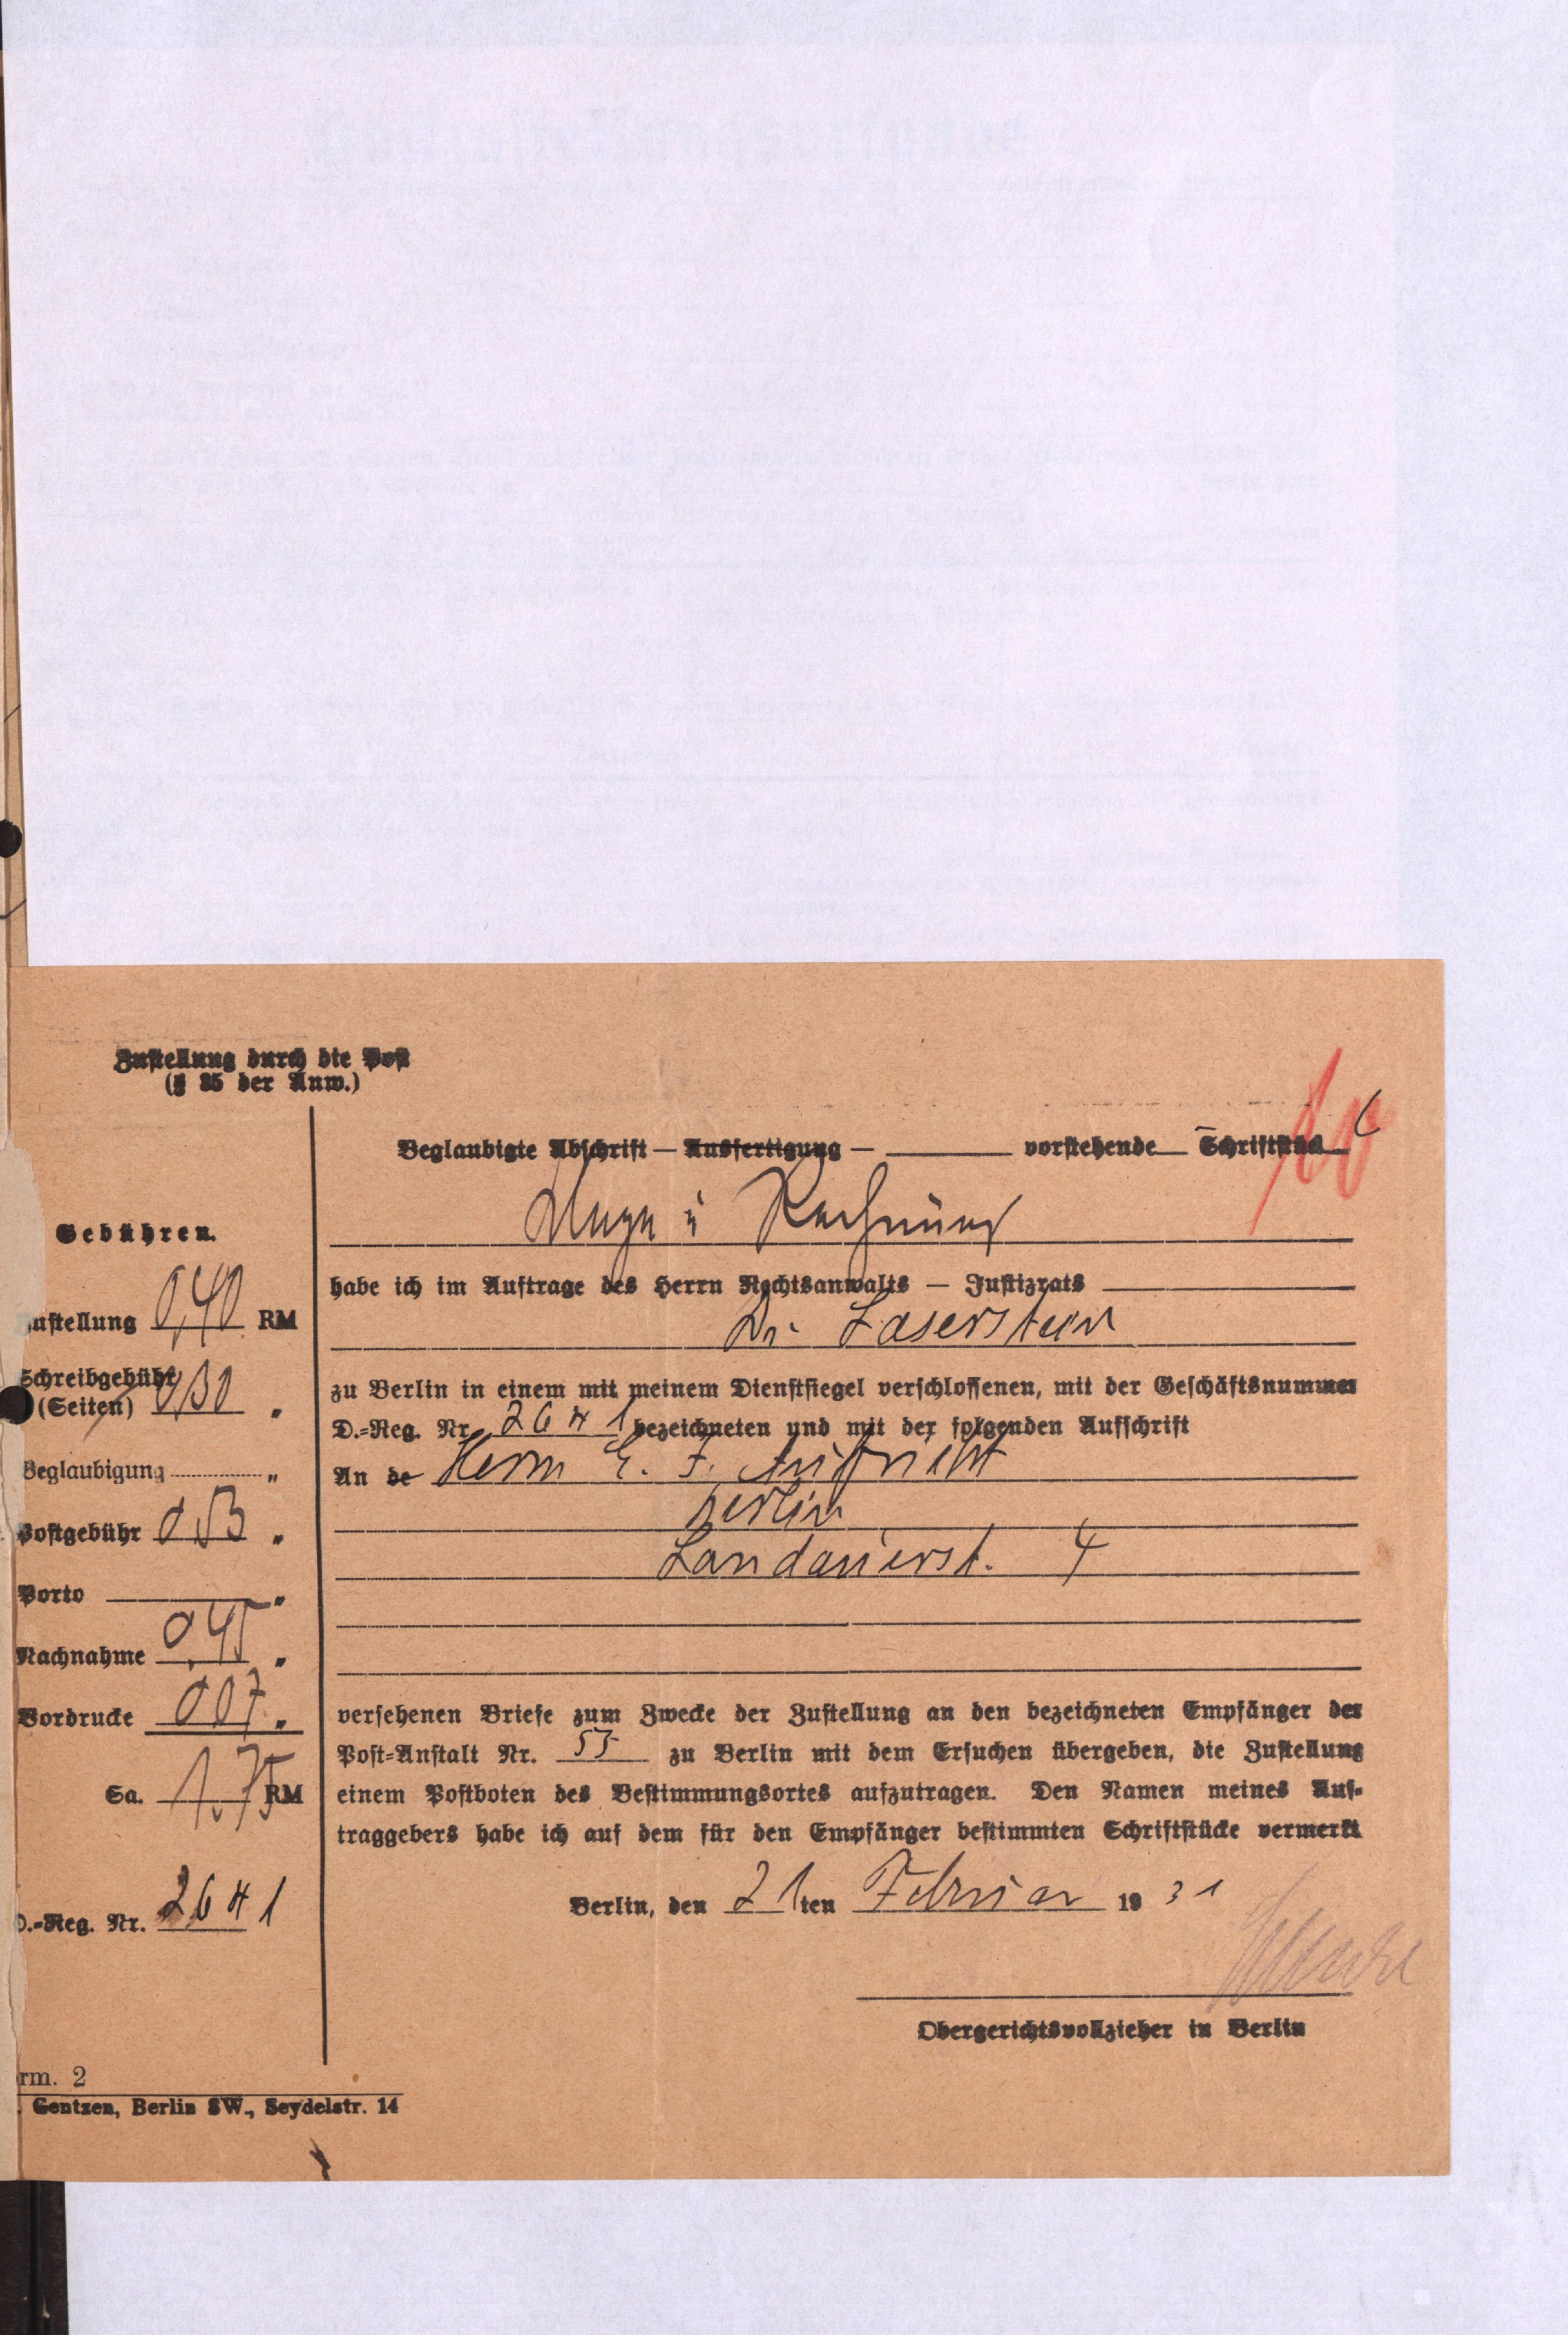 Zustellung durch die Post
(§ 35 der Anw.)
Beglaubigte Abschrift — Ausfertigung — vorstehende Schriftstück
Klage u Rechnung
habe ich im Auftrage des Herrn Rechtsanwalts — Justizrats
Dr. Laserstein
zu Berlin in einem mit meinem Dienstsiegel verschlossenen, mit der Geschäftsnummer
D.-Reg. Nr. 2641 bezeichneten und mit der folgenden Aufschrift
An de Herrn E. J. Aufricht
Berlin
Landauerst. 4
versehenen Briefe zum Zwecke der Zustellung an den bezeichneten Empfänger der
Post-Anstalt Nr. 55 zu Berlin mit dem Ersuchen übergeben, die Zustellung
einem Postboten des Bestimmungsortes aufzutragen. Den Namen meines Auf-
traggebers habe ich auf dem für den Empfänger bestimmten Schriftstücke vermerkt
Berlin, den 21ten Februar 1931
Obergerichtsvollzieher in Berlin
Gebühren.
ustellung 0,40 RM
Schreibgebühr
(Seiten) 0,30 "
Beglaubigung "
Postgebühr 0,53 "
Porto "
Nachnahme 0,45 "
Vordrucke 0 07 "
Sa. 1.75 RM
D.-Reg. Nr. 2641
rm. 2
. Gentzen, Berlin SW., Seydelstr. 14